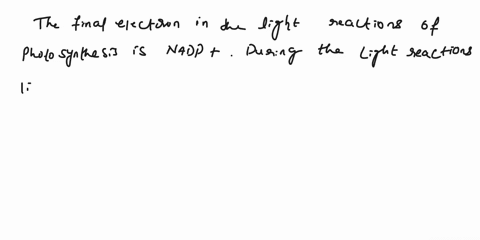 The final electron in the light reactions of
photosynthesis is NADP+. During the Light reactions
li